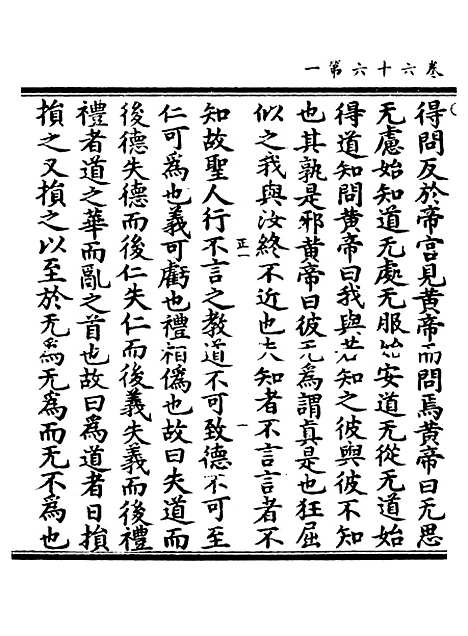 卷六十六第一
得問反於帝宫見黄帝而問焉黄帝曰无思
无慮始知道无處无服始安道无從无道始
得道知問黄帝曰我與若知之彼與彼不知
也其孰是邪黄帝曰彼无為謂真是也狂屈
似之我與汝終不近也夫知者不言言者不
正一 一
知故聖人行不言之教道不可致德不可至
仁可為也義可虧也禮相僞也故曰失道而
後德失德而後仁失仁而後義失義而後禮
禮者道之華而亂之首也故曰為道者日損
損之又損之以至於无為无為而无不為也